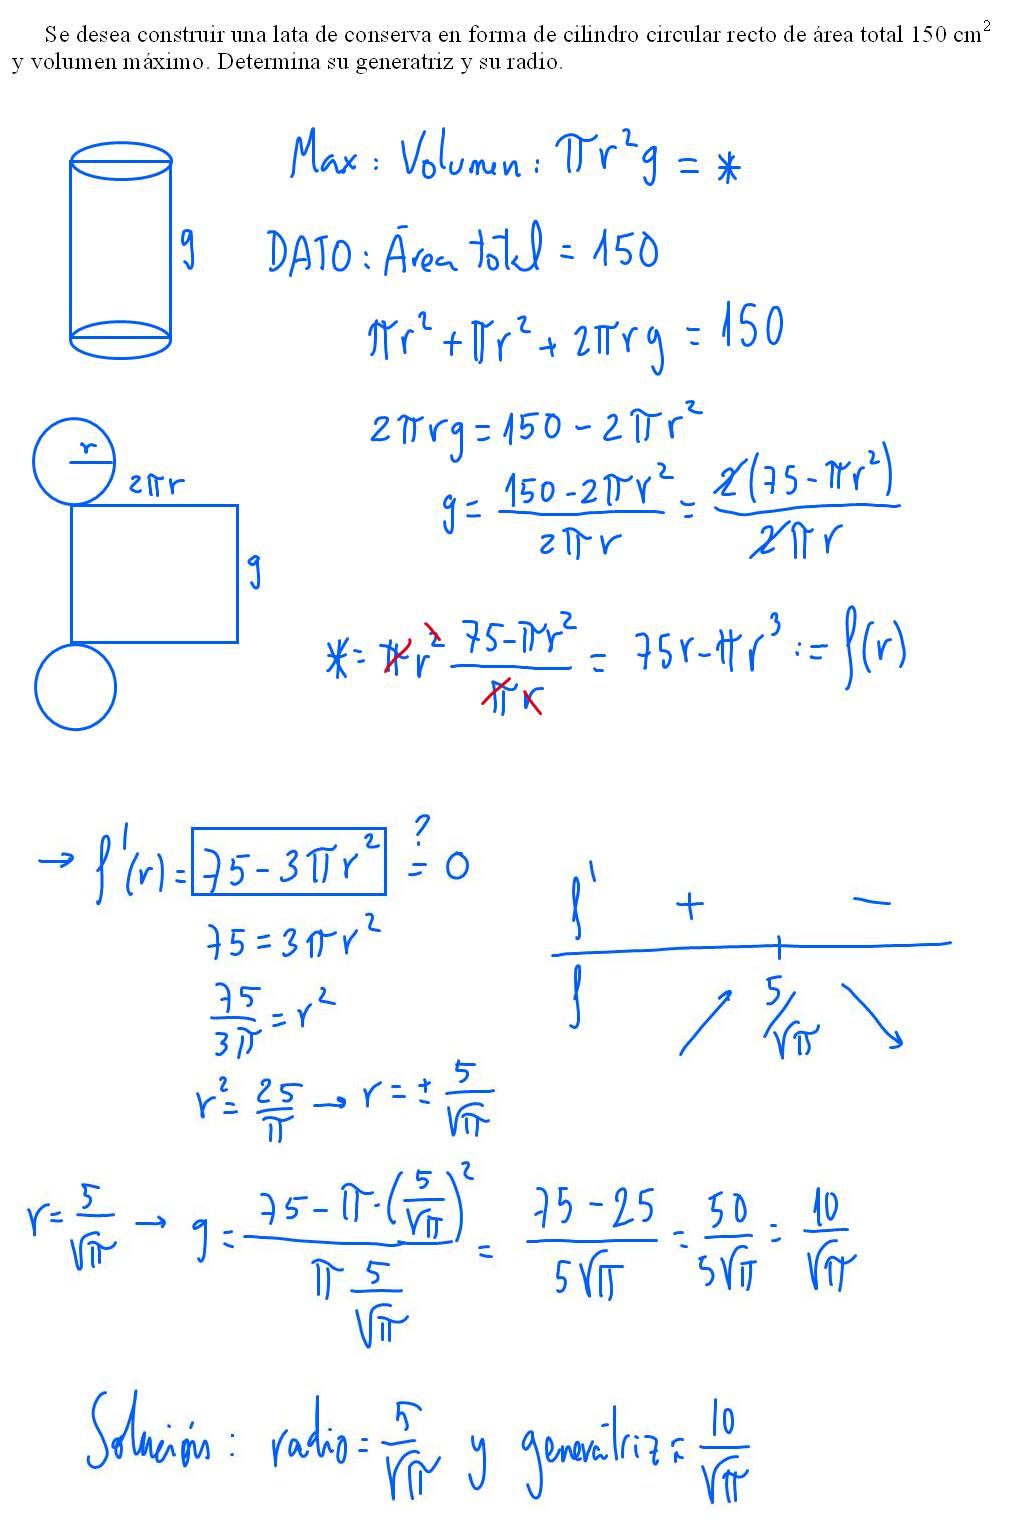 Se desea construir una lata de conserva en forma de cilindro circular recto de área total 150 cm²
y volumen máximo. Determina su generatriz y su radio.
Max: Volumen: πr²g = *
g
DATO: Área total = 150
πr² + πr² + 2πrg = 150
2πrg = 150 - 2πr²
r
2πr
g = (150 - 2πr²)/(2πr) = 2(75 - πr²)/(2πr)
g
* = πr² (75 - πr²)/(πr) = 75r - πr³ := f(r)
→ f'(r) = 75 - 3πr² ?= 0
75 = 3πr²
75/(3π) = r²
r² = 25/π → r = ± 5/√π
f' + -
f 5/√π
r = 5/√π → g = (75 - π·(5/√π)²)/(π 5/√π) = (75 - 25)/(5√π) = 50/(5√π) = 10/√π
Solución: radio = 5/√π y generatriz = 10/√π